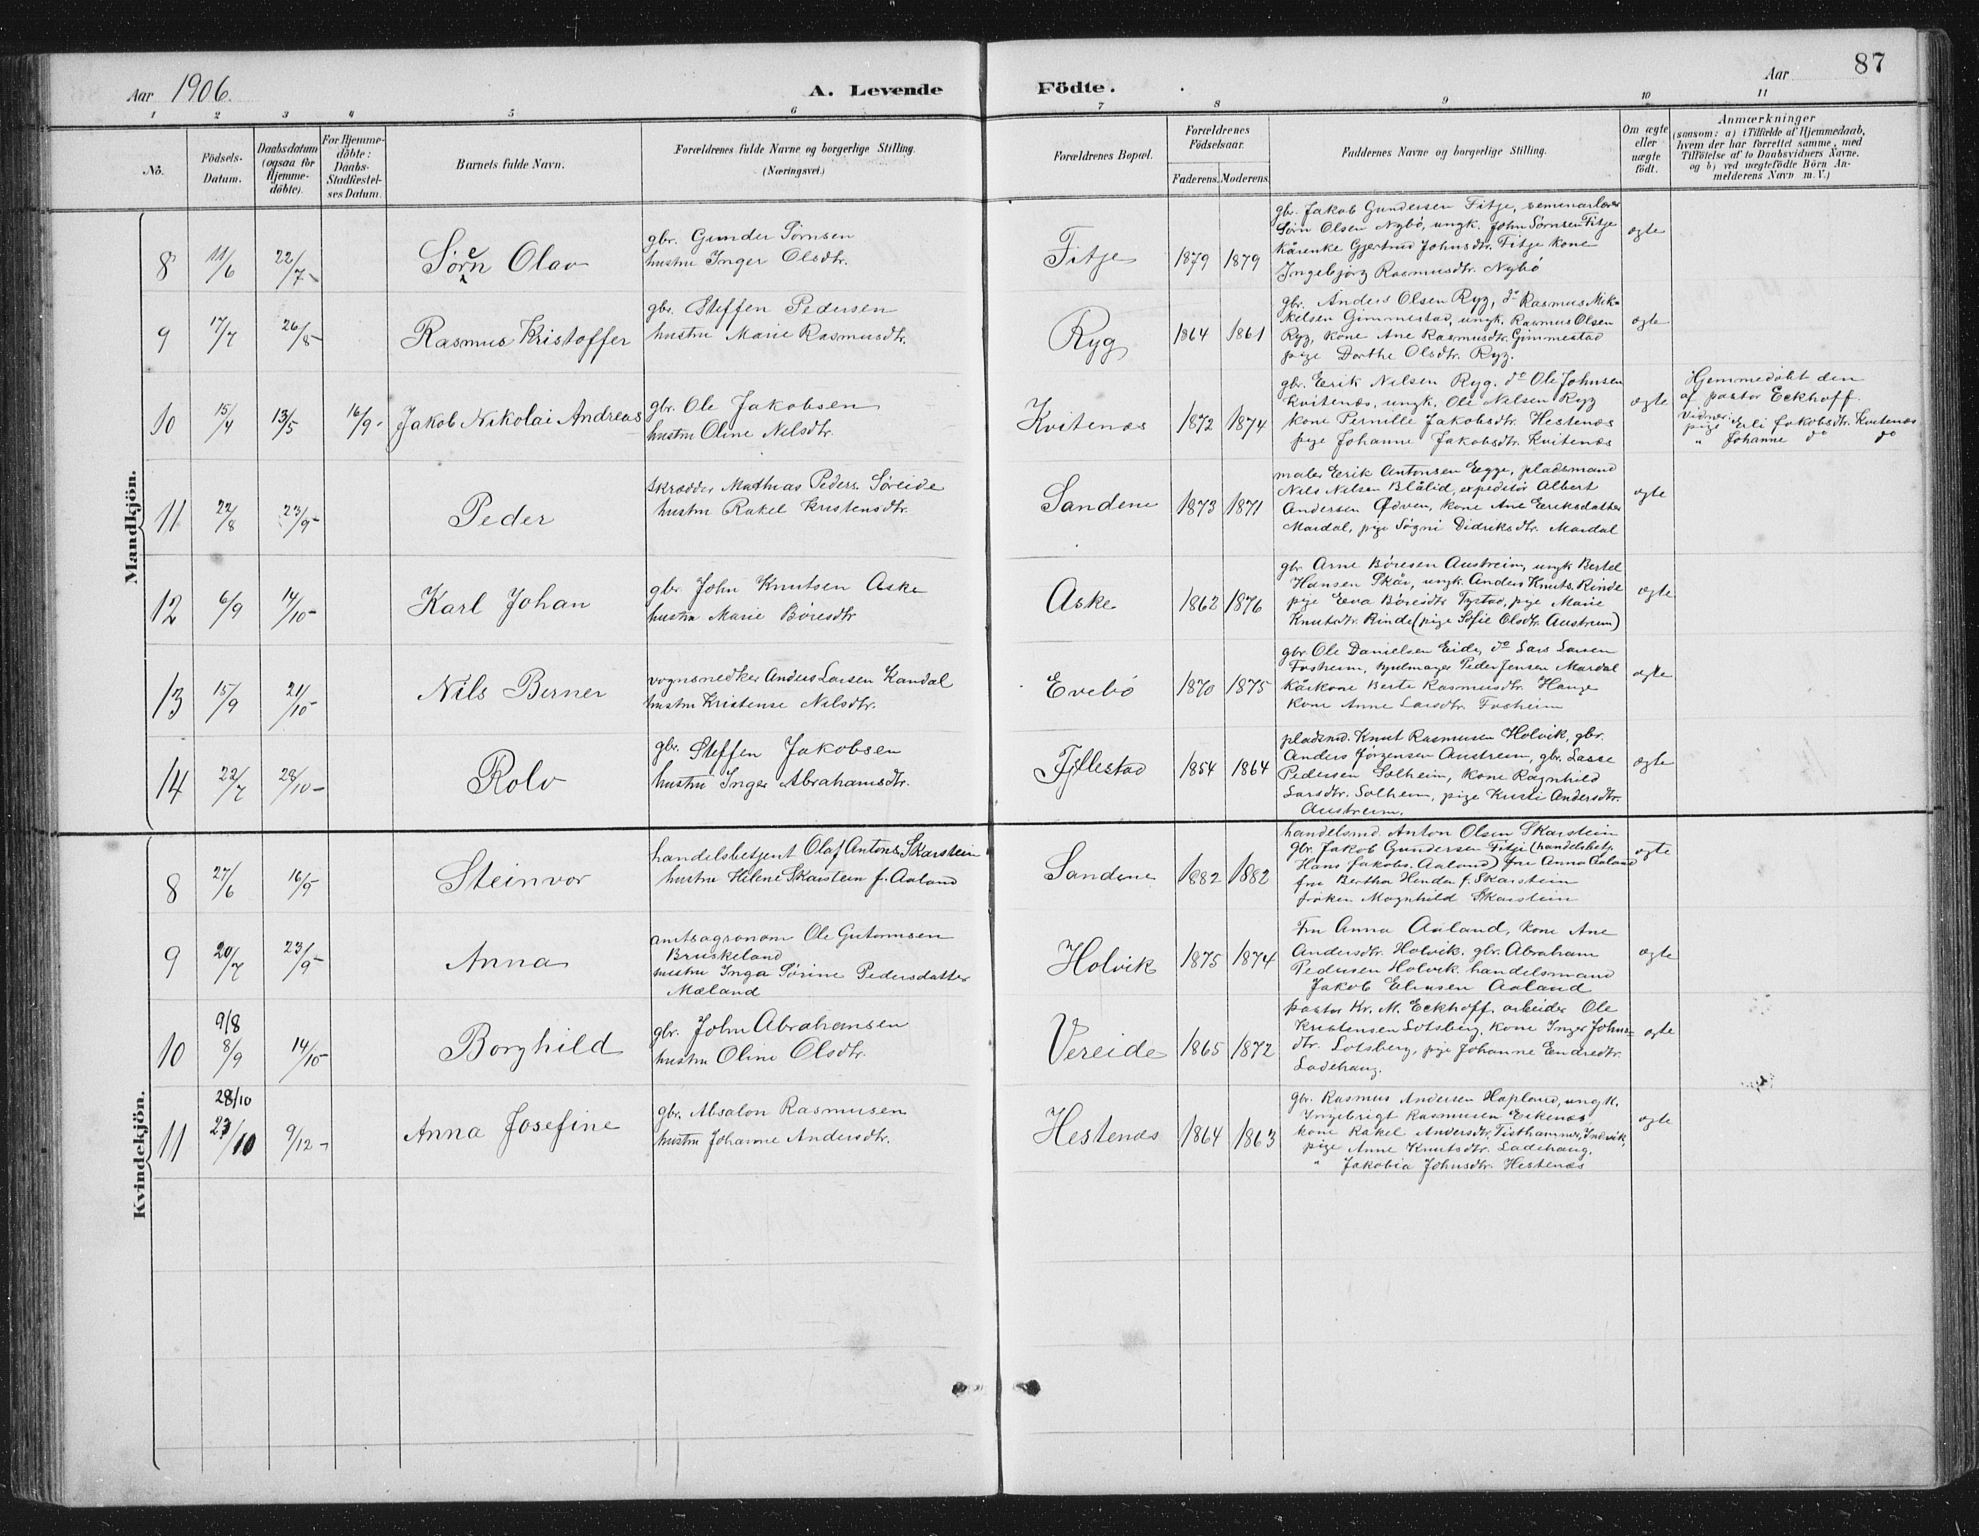 Aar 1906.
A. Levende Födte.
Aar
87
1 2 3 4 5 6 7 8 9 10 11
No.
Födsels-Datum.
Daabsdatum (ogsaa for Hjemme-döbte).
For Hjemme-döbte: Daabs-Stadfæstel-ses Datum.
Barnets fulde Navn.
Forældrenes fulde Navne og borgerlige Stilling.
(Næringsvei.)
Forældrenes Bopæl.
Forældrenes Födselsaar.
Faderens. Moderens.
Faddernes Navne og borgerlige Stilling.
Om ægte eller uægte födt.
Anmærkninger
(saasom: a) i Tilfælde af Hjemmedaab,
hvem der har forrettet samme, med
Tilföielse af to Daabsvidners Navne.
og b) ved uægtefödte Börn An-
melderens Navn m. V.)
Mandkjön.
8 11/6 22/7 Søren Olav
gbr. Gunder Sørnsen
hustru Inger Olsdtr.
Fitje 1879 1879
gbr. Jakob Gundersen Fitje, seminarlærer
Sørn Olsen Nybø, ungk. John Sørnsen Fitje
Kårenke Gjertrud Johnsdtr. Fitje kone
Ingebjørg Rasmusdtr. Nybø
ægte
9 17/7 26/8 Rasmus Kristoffer
gbr. Steffen Pedersen
hustru Marie Rasmusdtr.
Ryg 1864 1861
gbr. Anders Olsen Ryg, do Rasmus Mik-
kelsen Gimmestad, ungk. Rasmus Olsen
Ryg, kone Ane Rasmusdtr. Gimmestad
pige Dorthe Olsdtr. Ryg.
ægte
10 15/4 13/5 16/9 Jakob Nikolai Andreas
gbr. Ole Jakobsen
hustru Oline Nilsdtr.
Kvitenæs 1872 1874
gbr. Erik Nilsen Ryg. do Ole Johnsen
Kvitenæs, ungk. Ole Nilsen Ryg
kone Pernille Jakobsdtr. Hestenæs
pige Johanne Jakobsdtr. Kvitenæs
ægte
Hjemmedøbt den
af pastor Eckhoff.
Vidner:
pige Erli Jakobsdtr. Kvitenæs
" Johanne do do
11 22/8 23/9 Peder
skrædder Mathias Peders. Søreide
hustru Rakel Kristensdtr.
Sandene 1873 1871
maler Erik Antonsen Egge, pladsmand
Nils Nilsen Blålid, expeditør Albert
Andersen Ødven, kone Ane Eriksdatter
Mardal, pige Søgni Didriksdtr. Mardal
ægte
12 6/9 14/10 Karl Johan
gbr. John Knutsen Aske
hustru Marie Børesdtr
Aske 1862 1876
gbr. Arne Børesen Austreim, ungk Bertel
Hansen Skår, ungk. Anders Knuts. Rinde
pige Eva Børesdtr Tystad, pige Marie
Knutsdtr. Rinde (pige Sofie Olsdtr. Austreim)
ægte
13 15/9 21/10 Nils Berner
vognsnedker Anders Larsen Kandal
hustru Kristense Nilsdtr.
Evebø 1870 1875
gbr. Ole Danielsen Eide, do Lars Larsen
Fosheim, hjulmager Peder Jensen Mardal
kårkone Berte Rasmusdtr. Hauge
kone Anne Larsdtr. Fosheim
ægte
14 22/7 28/10 Rolv
gbr. Steffen Jakobsen
hustru Inger Abrahamsdtr.
Fjellestad 1854 1864
pladsmd. Knut Rasmusen Holvik, gbr.
Anders Jørgensen Austreim, gbr. Lasse
Pedersen Solheim, kone Ragnhild
Larsdtr. Solheim, pige Kristi Andersdtr.
Austreim.
ægte
Kvindekjön.
8 27/6 16/9 Steinvor
handelsbetjent Olaf Antons. Skarstein
hustru Helene Skarstein f. Aaland
Sandene 1882 1882
handelsmd. Anton Olsen Skarstein
gbr. Jakob Gundersen Fitje (handelsbetj.
Hans Jakobs. Aaland) frue Anna Aaland
fru Bertha Henden f. Skarstein
frøken Magnhild Skarstein
ægte
9 20/7 23/9 Anna
amtsagronom Ole Guttormsen
Bruskeland
hustru Inga Sørine Pedersdatter
Mæland
Holvik 1875 1874
Fru Anna Aaland, kone Ane
Andersdtr. Holvik. gbr. Abraham
Pedersen Holvik. handelsmand
Jakob Eliasen Aaland
ægte
10 9/8 8/9 14/10 Borghild
gbr. John Abrahamsen
hustru Oline Olsdtr.
Vereide 1865 1872
pastor Kr. M. Eckhoff. arbeider Ole
Kristensen Lotsberg, kone Inger Johns-
dtr. Lotsberg, pige Johanne Endredtr.
Ladehaug.
ægte
11 28/10 23/10 9/12 Anna Josefine
gbr. Absalon Rasmusen
hustru Johanne Andersdtr.
Hestenæs 1864 1863
gbr. Rasmus Andersen Hopland, ungk.
Ingebrigt Rasmusen Eikenæs,
kone Rakel Andersdtr. Tisthammer, Indvik,
pige Anne Knutsdtr. Ladehaug.
" Jakobia Johnsdtr. Hestenæs
ægte